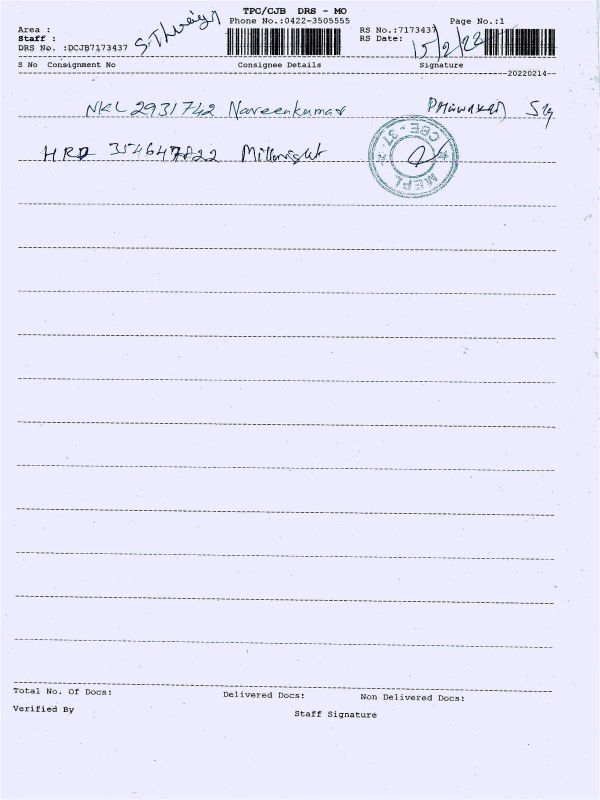 TPC/CJB DRS - MO
Area : Phone No.:0422-3505555 Page No.:1
Staff : RS No.:7173437
DRS No. :DCJB7173437 RS Date: 15/2/22
S No Consignment No Consignee Details Signature
20220214
NKL 2931742 Naveenkumar
HRD 354647822 Millwright
MEPL
CBE - 37
Total No. Of Docs: Delivered Docs: Non Delivered Docs:
Verified By Staff Signature